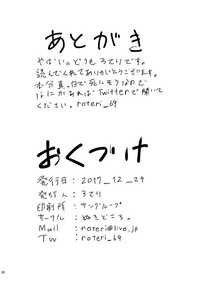 あとがき
やばい。どうも ろてりです。
読んでくれてありがとうございます。
本分真っ日で死にそうなので
なにかあれば Twitterで聞いて
ください。 roteri_69
おくづけ
発行日: 2017_12_29
発行人: ろてり
印刷所: サングループ
サークル: ぬきどころ。
Mail: roteri@live.jp
Tw: roteri_69